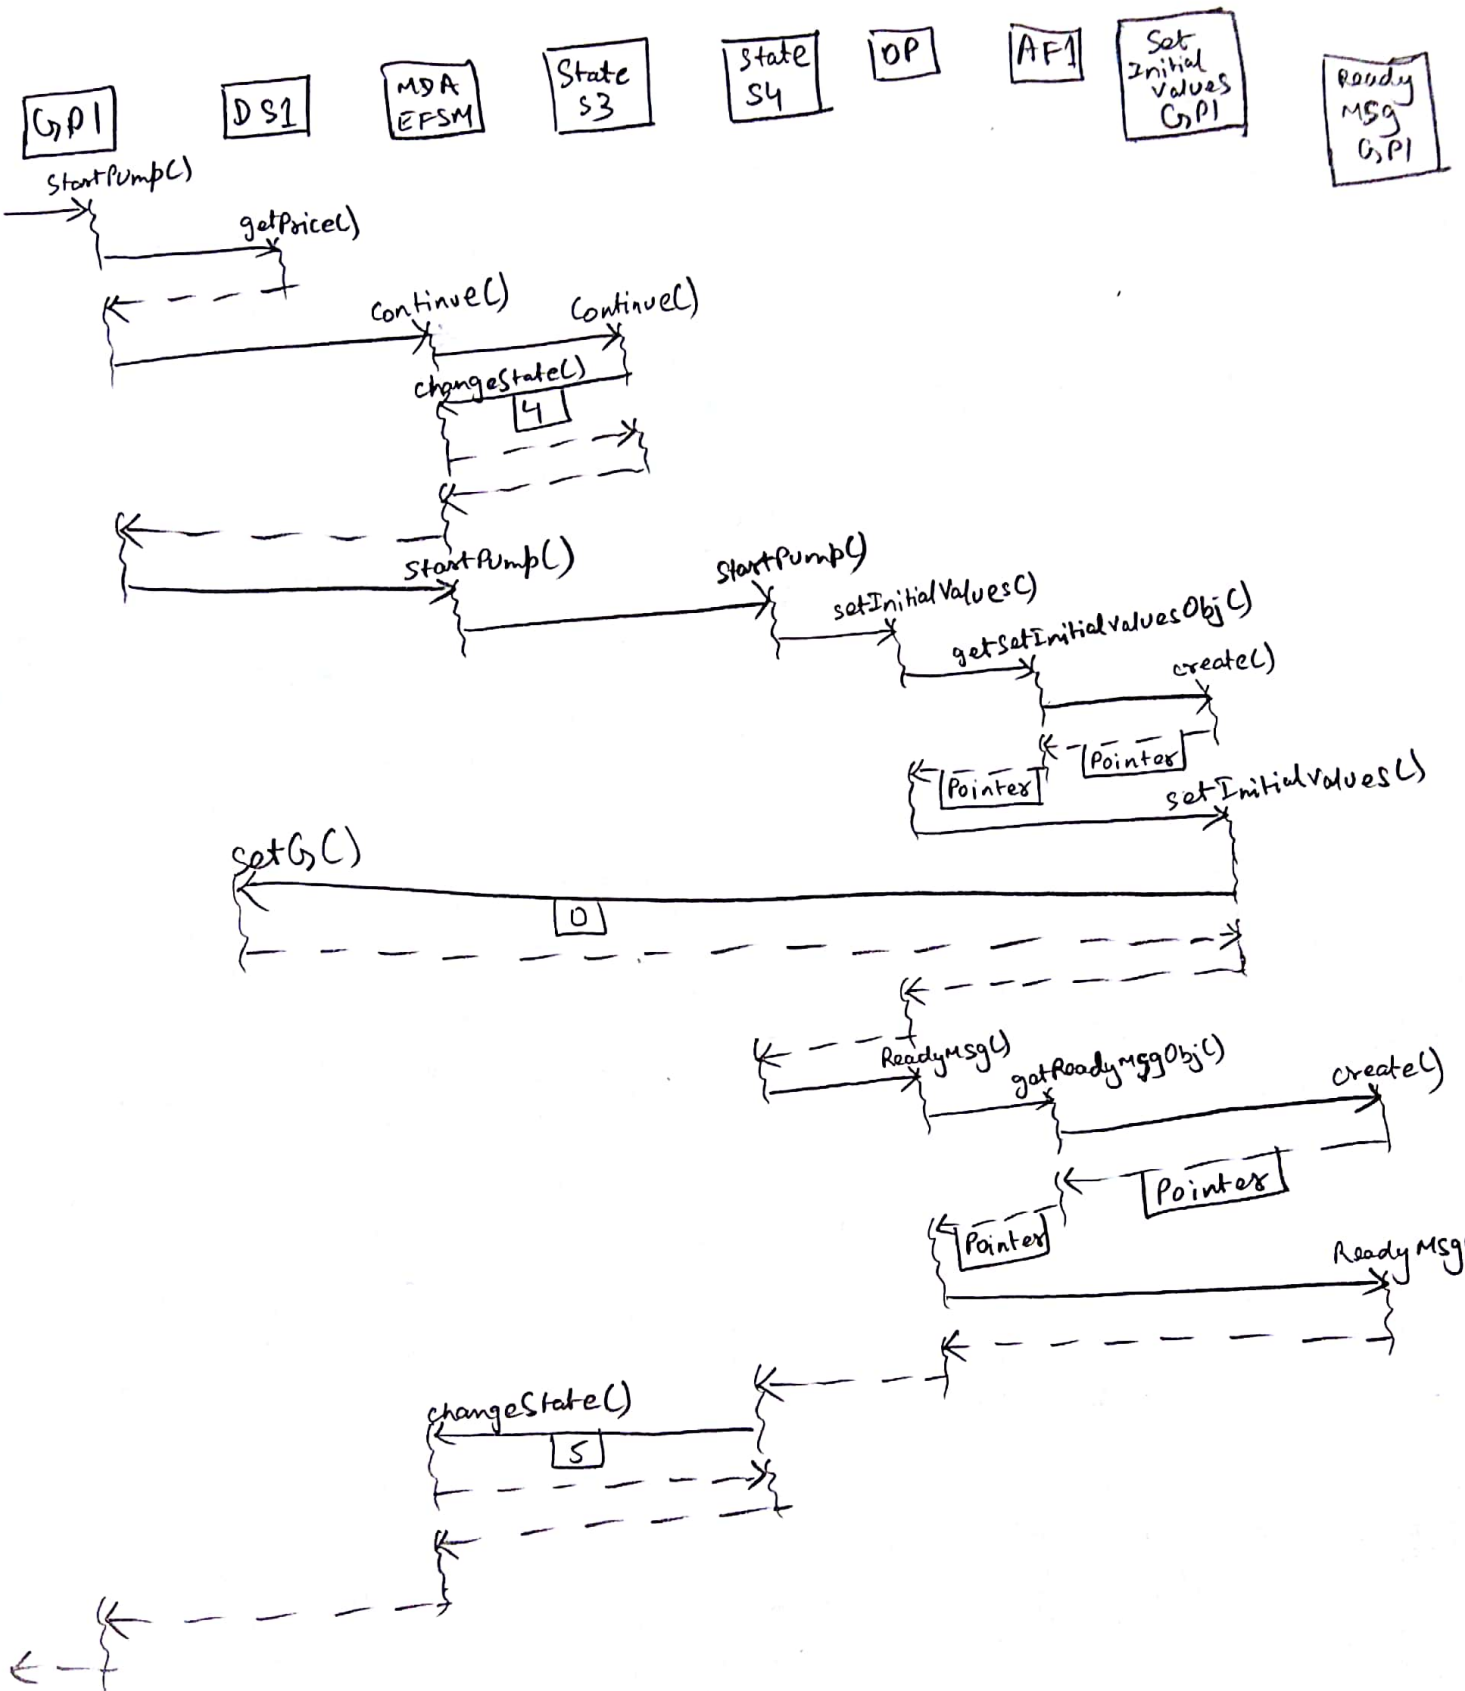 GP1
DS1
MDA
EFSM
State
S3
State
S4
OP
AF1
Set
Initial
Values
GP1
Ready
MSg
GP1
StartPump()
getPrice()
Continue()
Continue()
changeState()
4
StartPump()
StartPump()
setInitialValues()
getSetInitialValuesObj()
create()
Pointer
Pointer
setInitialValues()
setG()
0
ReadyMsg()
getReadyMsgObj()
create()
Pointer
Pointer
ReadyMsg
changeState()
5